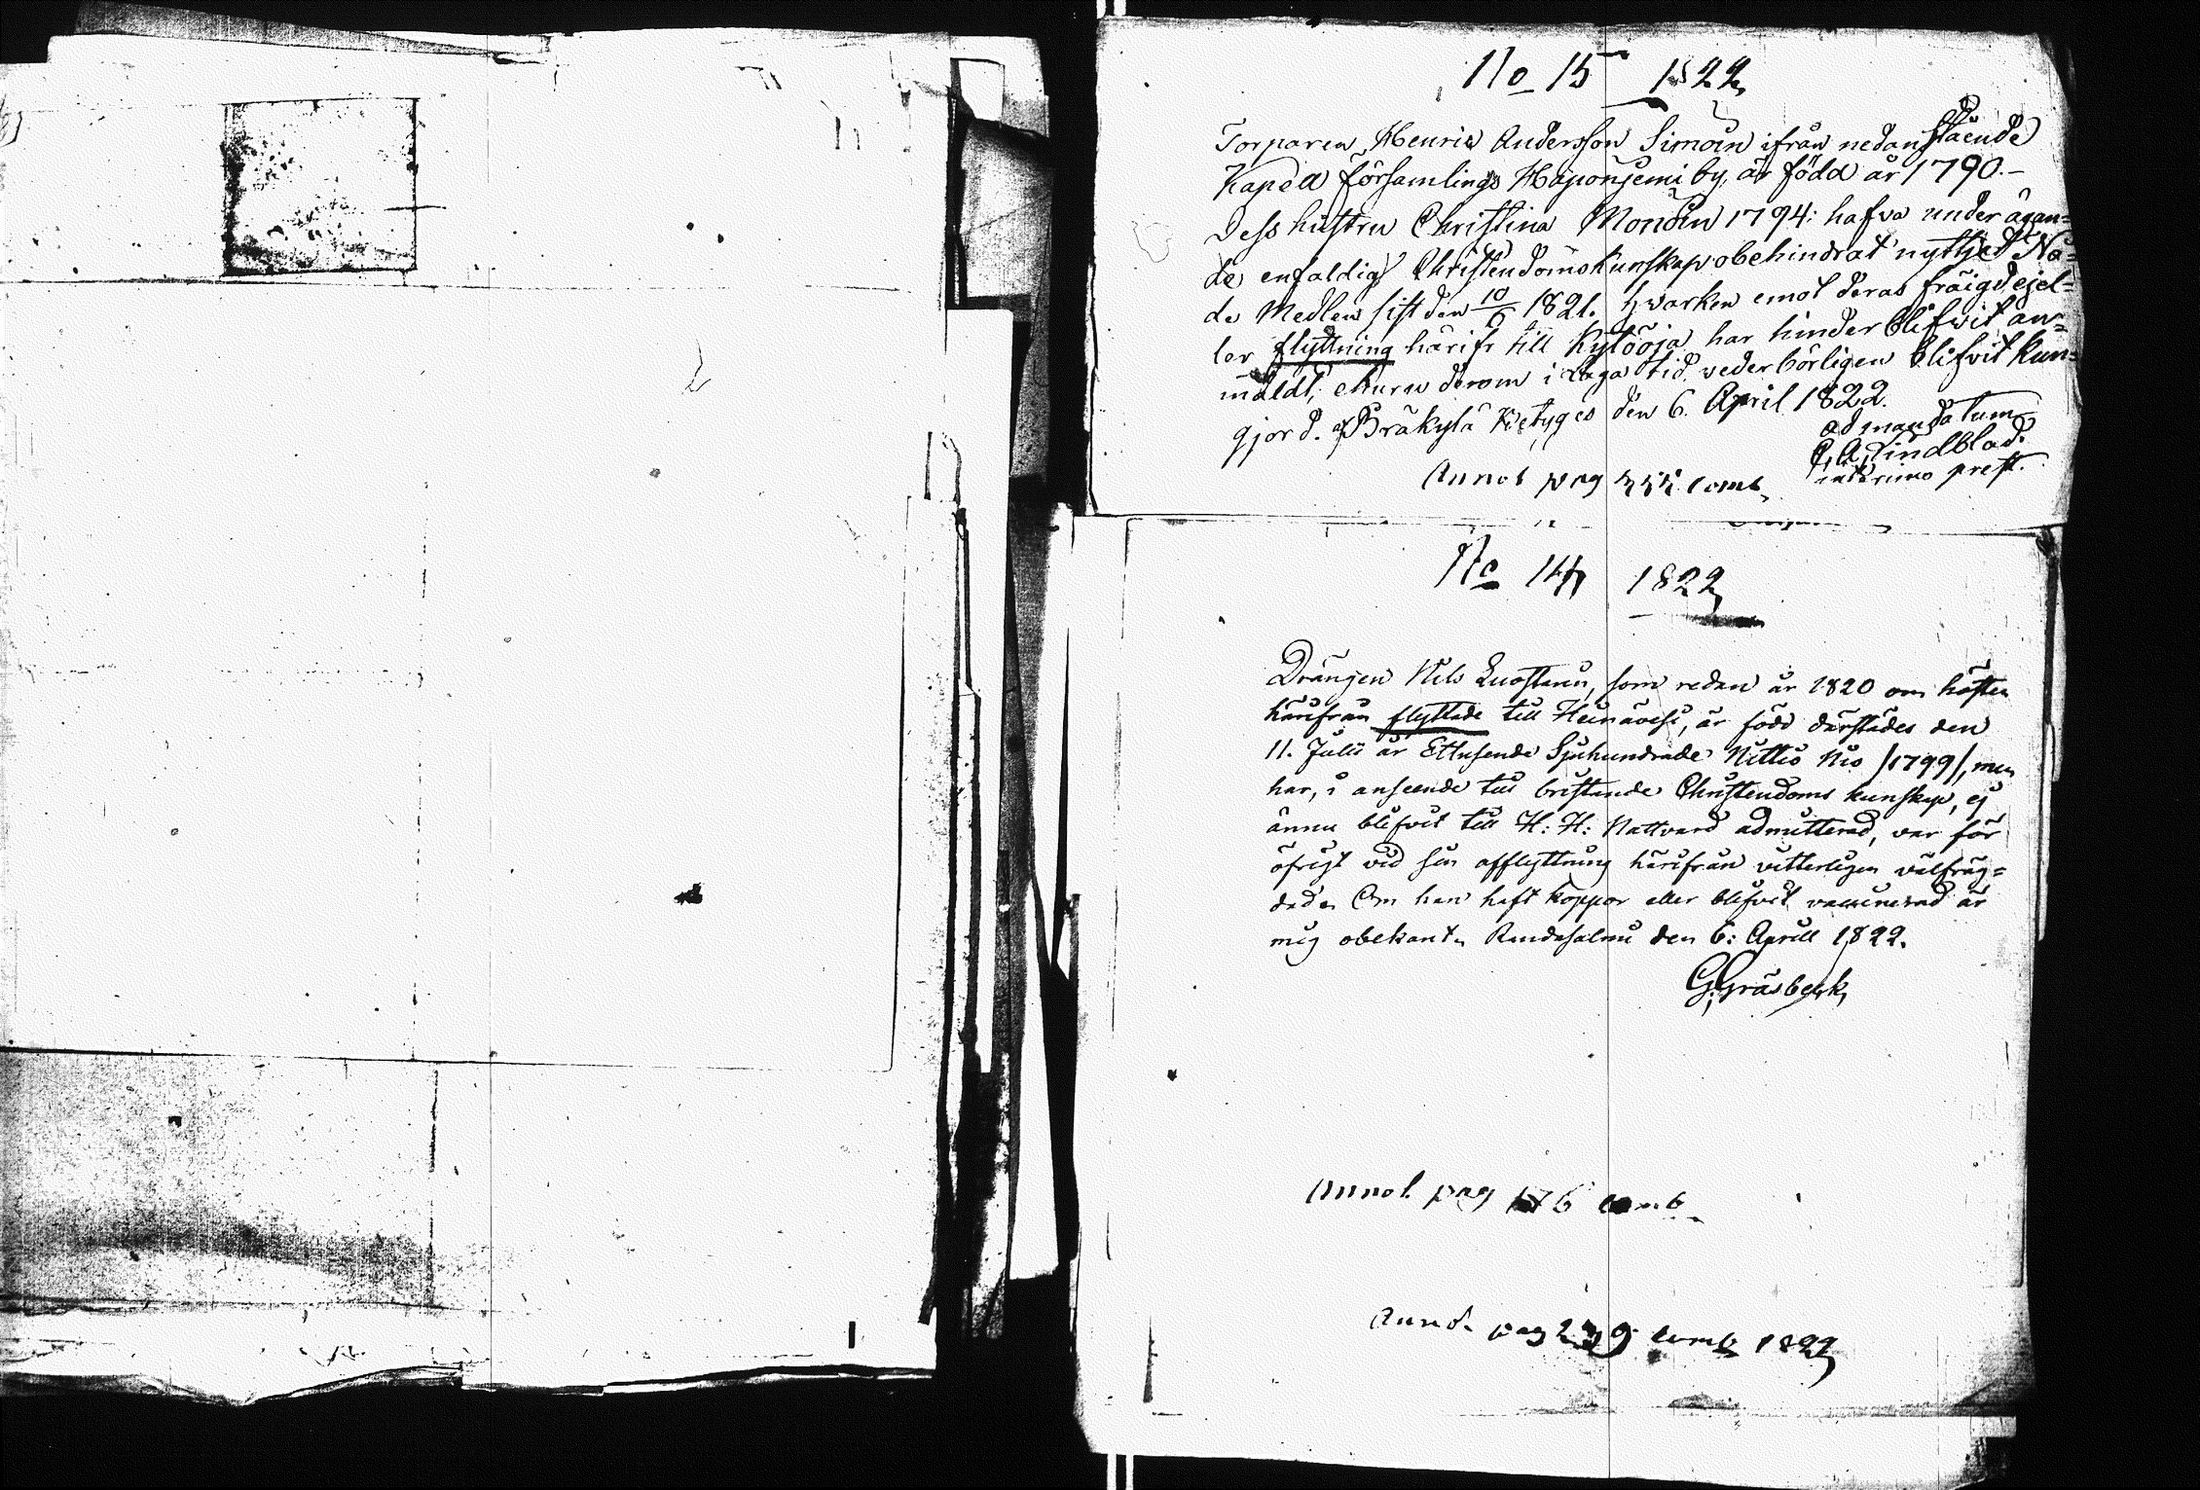 No 15 1822
Torparen Henric Andersson Simoin ifrån nedanstående
Kapell församlings Haponjemi by, är född år 1790.–
Dess hustru Christina Monoin 1794: hafva under ägan=
de enfaldig Christendoms kunskap obehindrat nyttjet Nå=
de Medlen sist den 10/6 1821. Hvarken emot deras fräigd ejel=
ler flyttning härifr till Kylööja har hinder blifwit an=
mäldt, ehuru derom i Laga tid vederbörligen blifvit kun=
gjord. af Bräkylä betyges den 6. April 1822.
ad mandatum
C. A. Lindblad.
interims prest.
Annot pag comb
No 14 1822
Drängen Nils Luostari, som redan år 1820 om hösten
härifrån flyttade till Heinävesi, är född därstädes den
11. Julii år Ettusende Sjuhundrade Nittio Nio /1799/, men
har, i anseende till bristande Christendoms kunskap, ej
ännu blifvit till H: H: Nattvard admitterad, var för
öfrigt vid sin afflyttning härifrån vitterligen välfräg=
dad. Om han haft koppor eller blifvit vaccinerad är
mig obekant. Randasalmi den 6: Aprill 1822.
G. Gräsbeck
Annot pag 176 comb
Annot pag 239 comb 1822